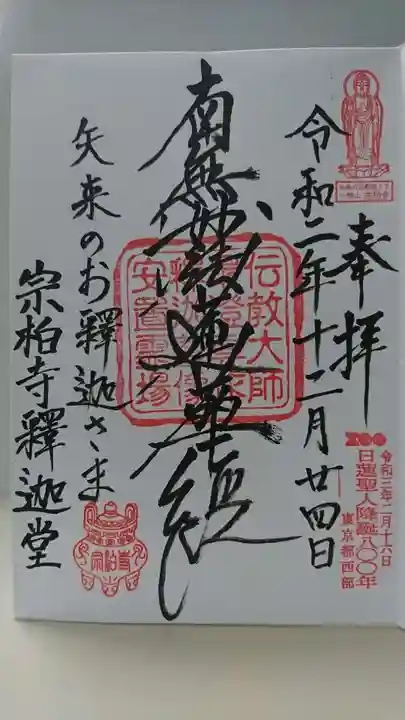 奉拝
令和二年十二月廿四日
南無妙法蓮華経
矢来のお釋迦さま
宗柏寺釋迦堂
伝教大師
安置霊場
令和三年二月十六日
日蓮聖人降誕八〇〇年
東京都西部